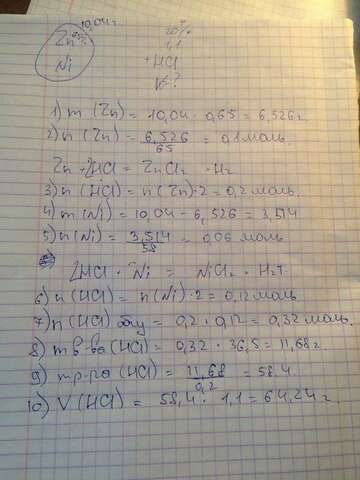 10,04 г
Zn 65%
Ni
20%
1,1
+HCl
V-?
1) m (Zn) = 10,04 · 0,65 = 6,526 г
2) n (Zn) = 6,526/65 = 0,1 моль
Zn + 2HCl = ZnCl₂ + H₂
3) n (HCl) = n (Zn) · 2 = 0,2 моль.
4) m (Ni) = 10,04 - 6,526 = 3,514
5) n (Ni) = 3,514/58 = 0,06 моль
2HCl + Ni = NiCl₂ + H₂↑
6) n (HCl) = n (Ni) · 2 = 0,12 моль.
7) n (HCl) общ = 0,2 + 0,12 = 0,32 моль.
8) m в-ва (HCl) = 0,32 · 36,5 = 11,68 г
9) m р-ра (HCl) = 11,68/0,2 = 58.4
10) V (HCl) = 58,4 · 1,1 = 64,24 г.